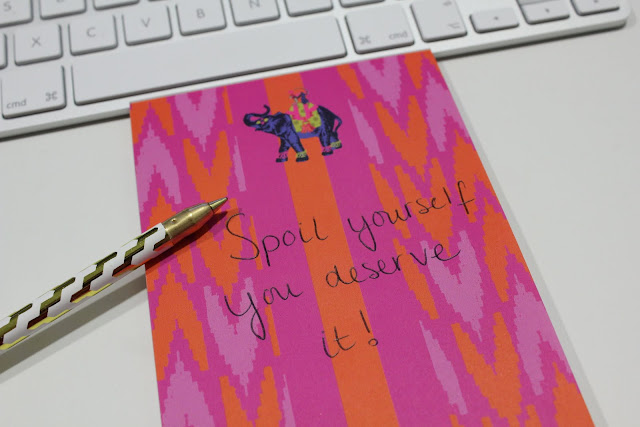 X C V B N M < > ?
cmd ⌘ ⌘ cmd
Spoil yourself
You deserve
it!